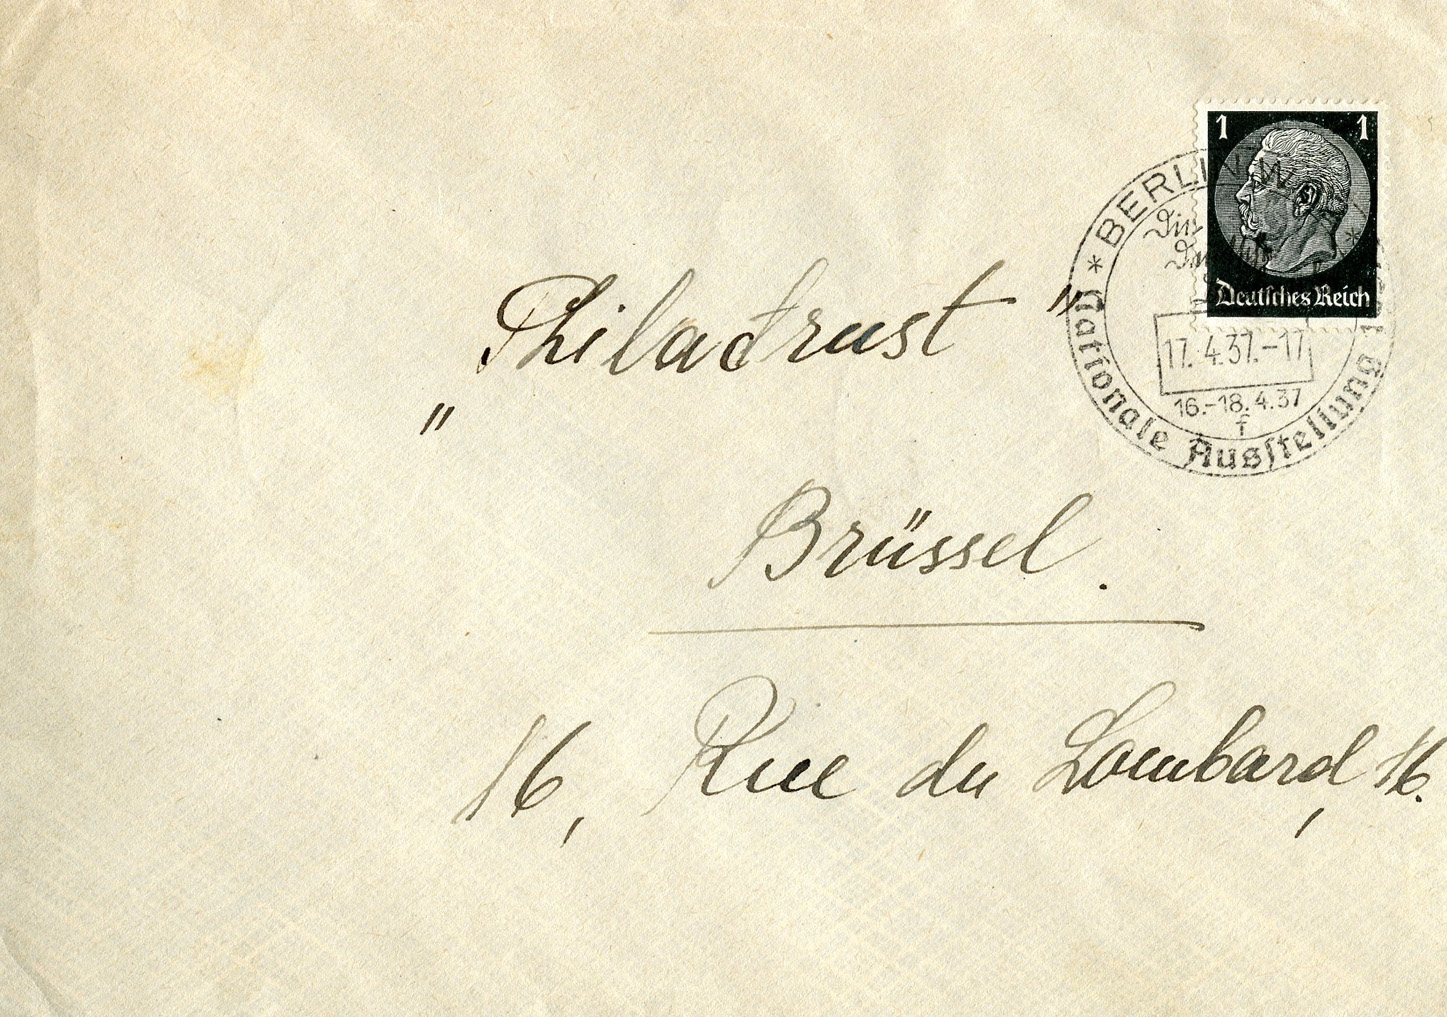 1 1
Deutsches Reich
* BERLIN W *
17.4.37.-17
16.-18.4.37
f
Nationale Ausstellung
„Philatrust"
Brüssel.
16, Rue du Lombard, 16.